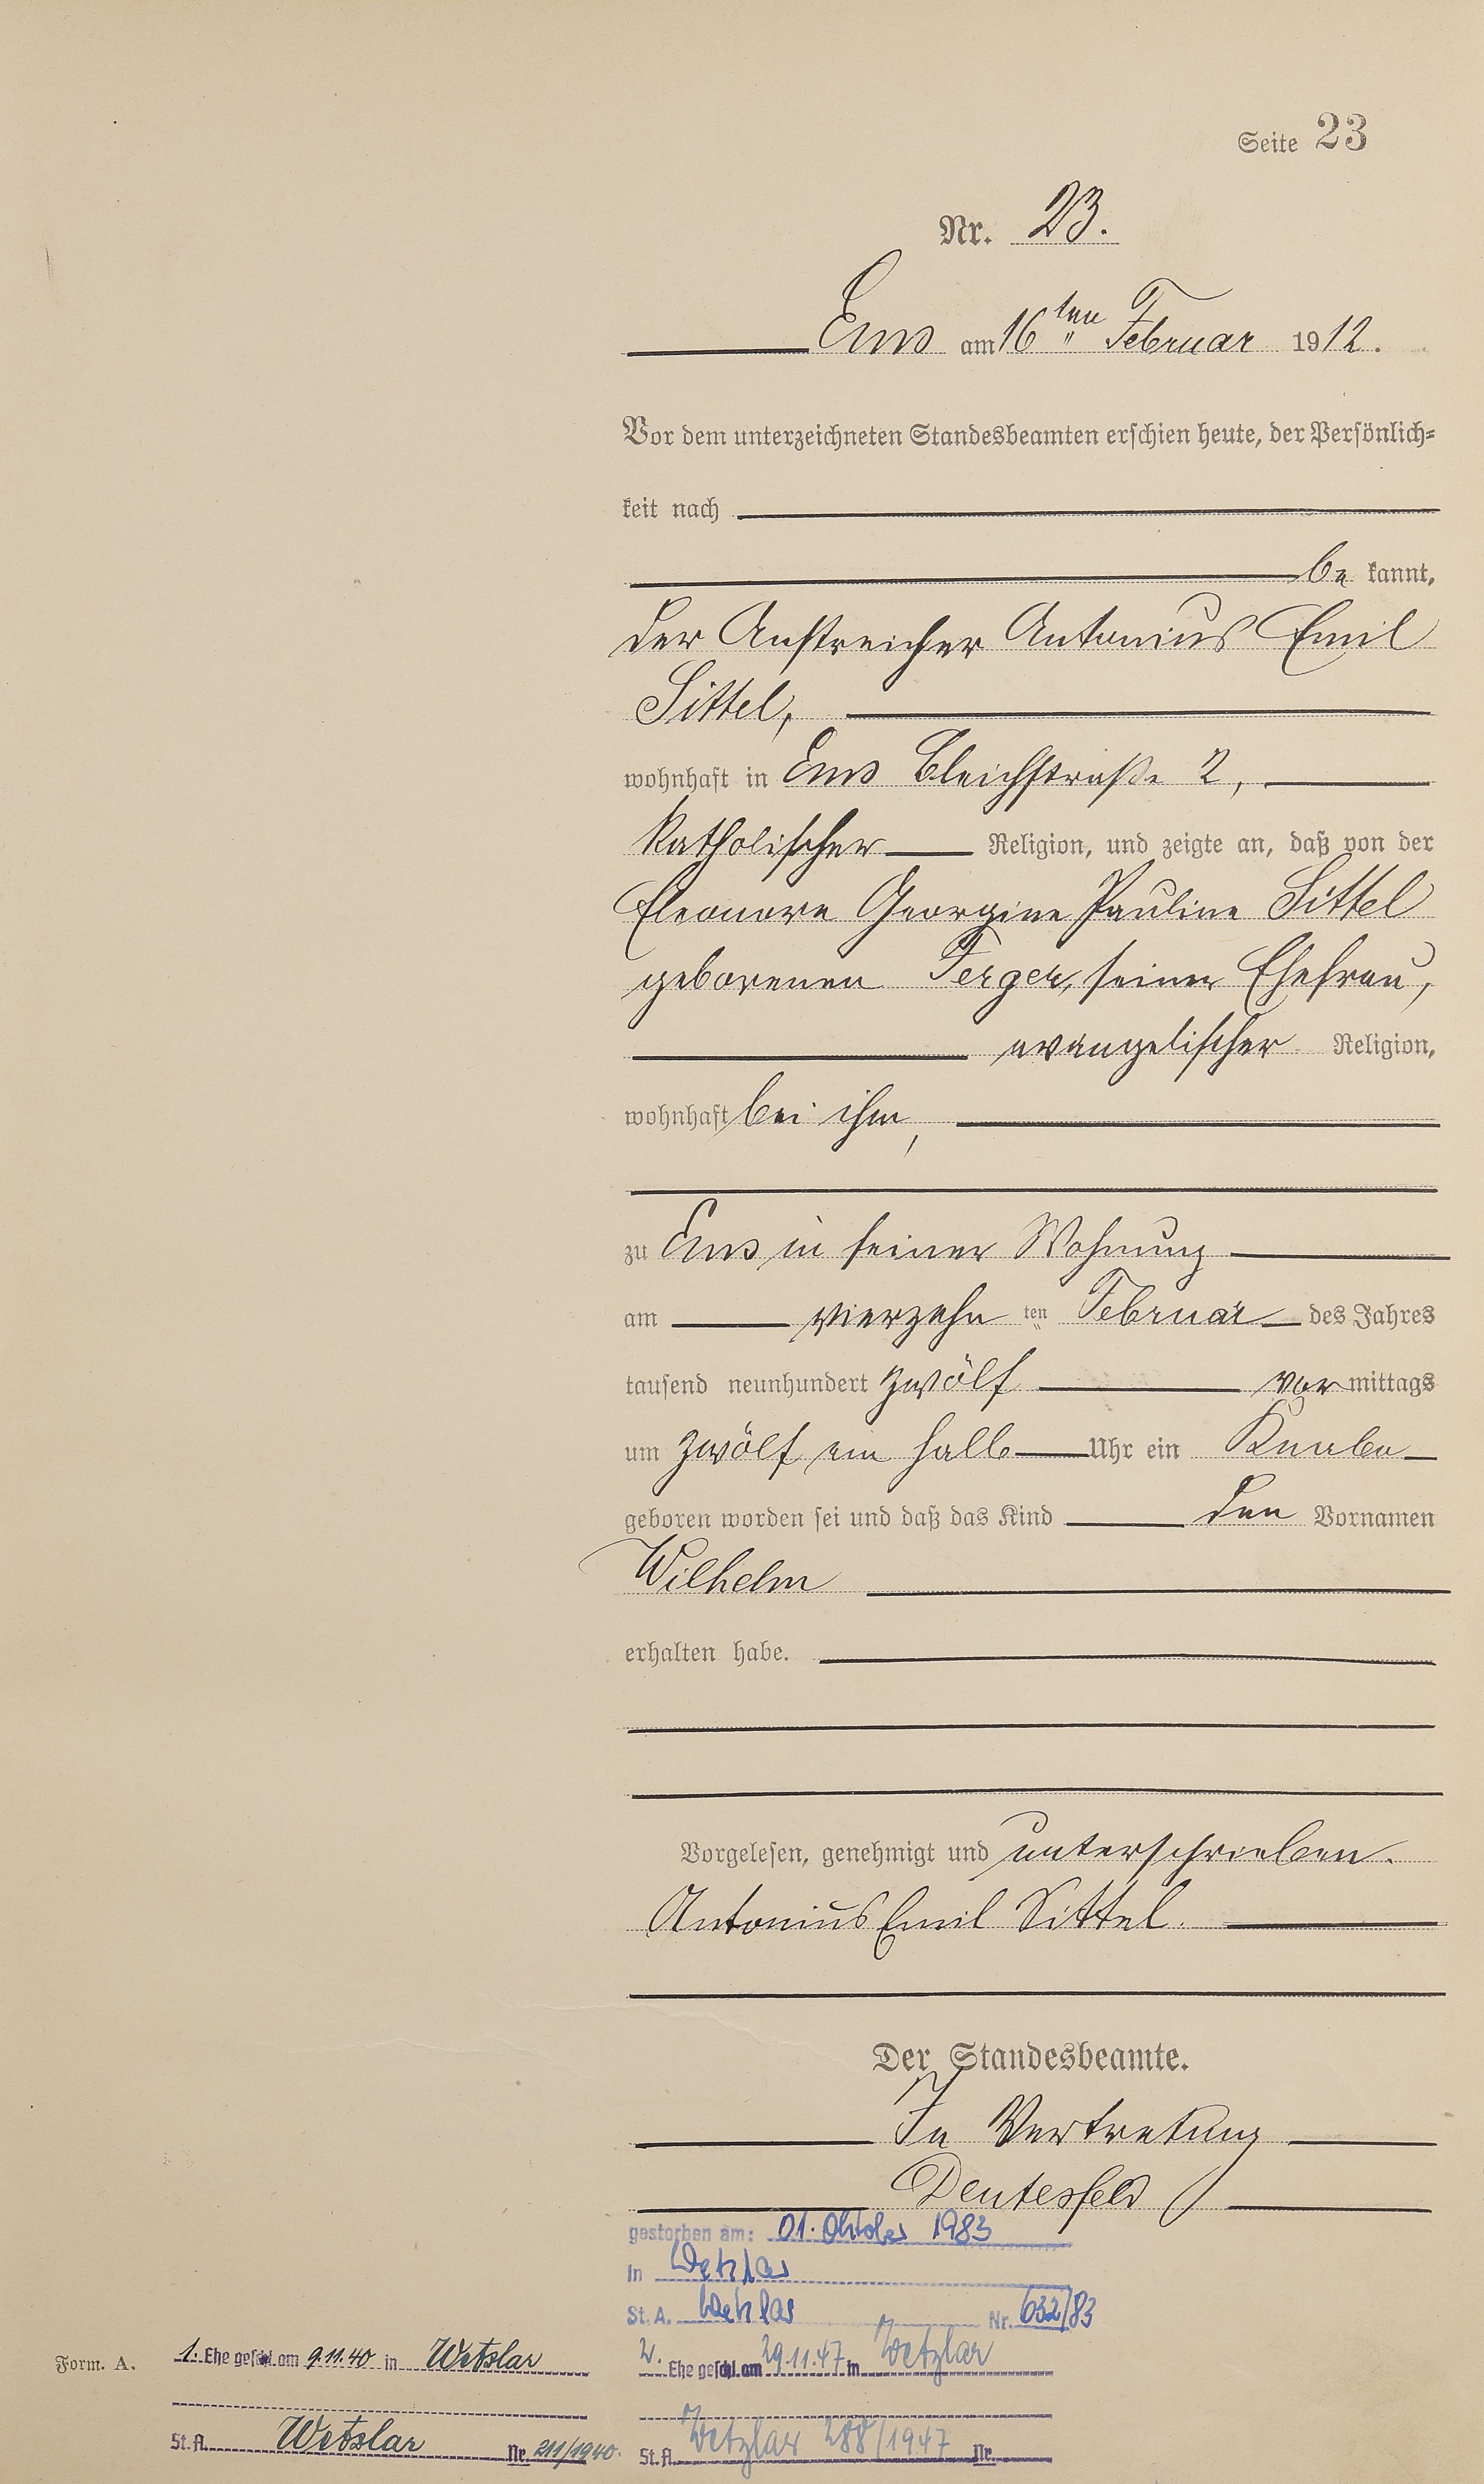 Seite 23
Nr. 23.
Ems am 16ten Februar 1912.
Vor dem unterzeichneten Standesbeamten erschien heute, der Persönlich-
keit nach
be kannt,
der Anstreicher Antonius Emil
Sittel,
wohnhaft in Ems Bleichstraße 2,
katholischer Religion, und zeigte an, daß von der
Eleonore Georgine Pauline Sittel
geborenen Ferger, seiner Ehefrau,
evangelischer Religion,
wohnhaft bei ihm,
zu Ems in seiner Wohnung
am vierzehn ten Februar des Jahres
tausend neunhundert zwölf vor mittags
um zwölf ein halb Uhr ein Knabe
geboren worden sei und daß das Kind den Vornamen
Wilhelm
erhalten habe.
Vorgelesen, genehmigt und unterschrieben.
Antonius Emil Sittel.
Der Standesbeamte.
In Vertretung
Deutesfeld
gestorben am: 01. Oktober 1983
in Wetzlar
St. A. Wetzlar Nr. 632/83
Form. A.
1. Ehe geschl. am 9.11.40 in Wetzlar
St. A. Wetzlar Nr. 211/1940.
2. Ehe geschl. am 29.11.47 in Wetzlar
St. A. Wetzlar 288/1947 Nr.